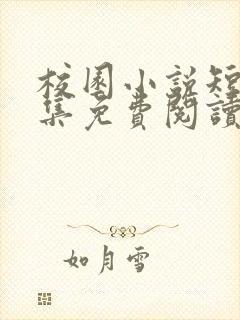 校園小說短
集免費閱讀
如月雪